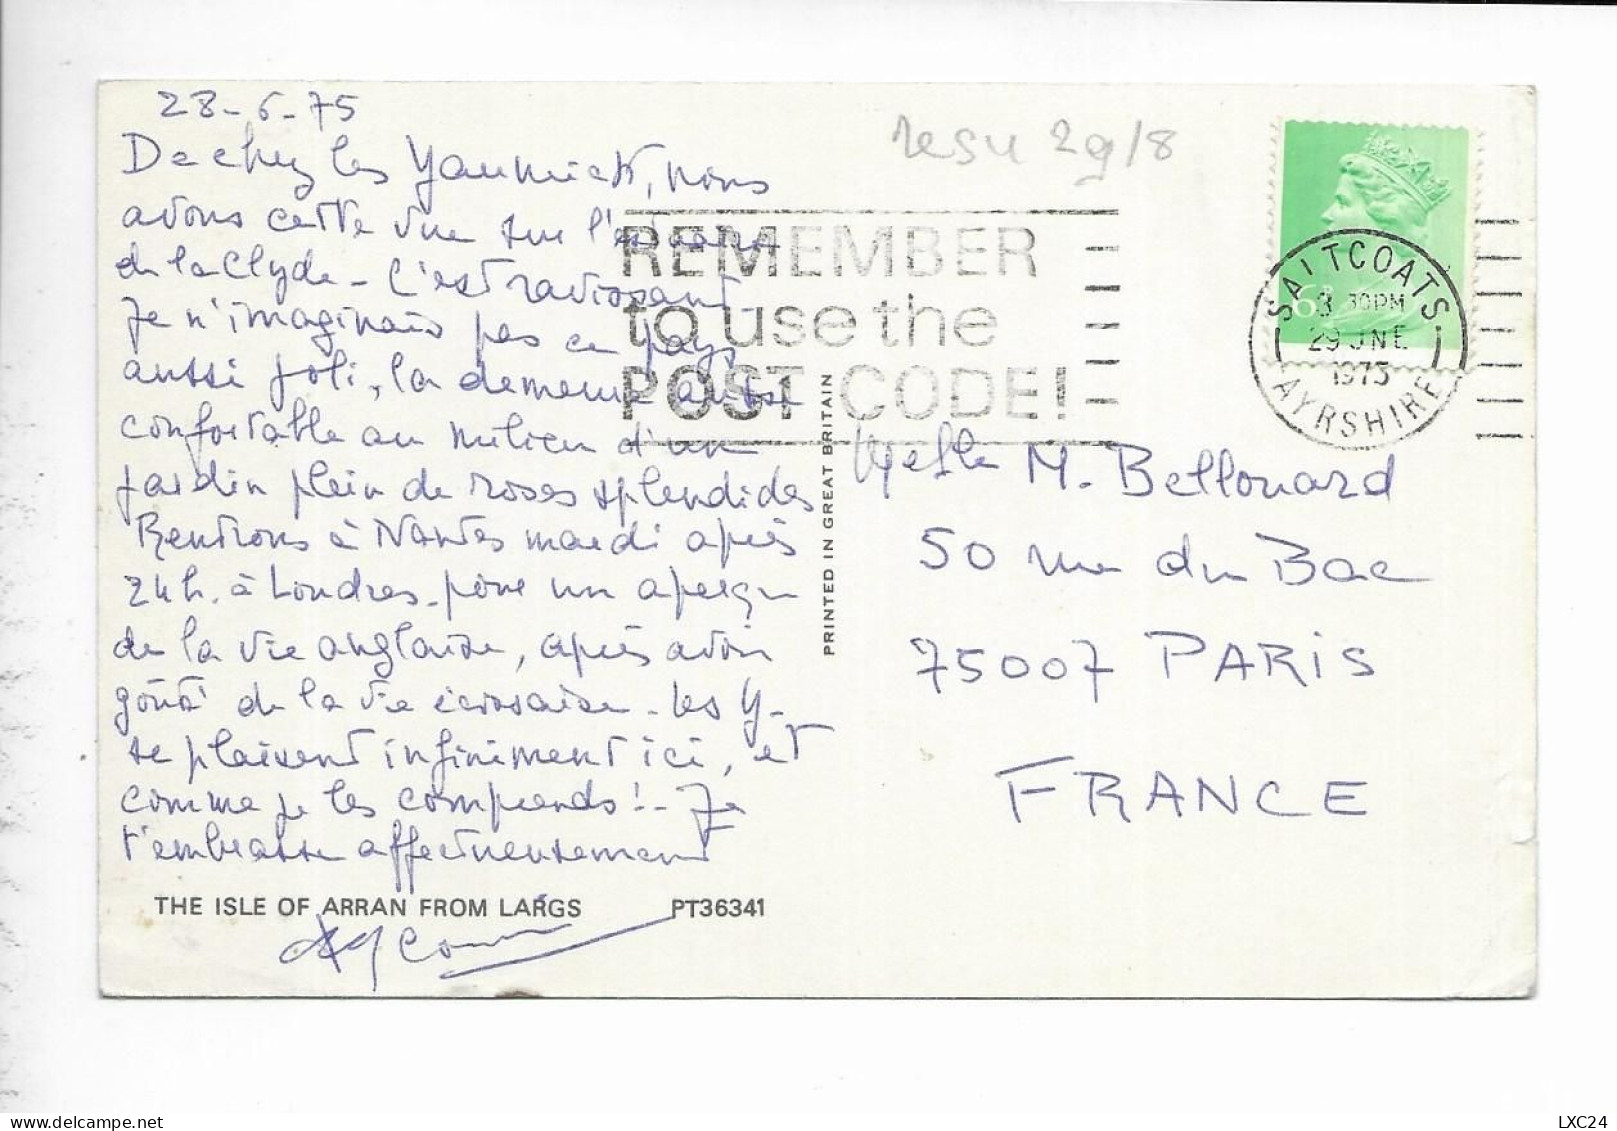 28-6-75
De chez les Yannick, nous
avons cette vue sur l'estuaire
de la Clyde - C'est ravissant -
Je n'imaginais pas ce pays
aussi joli, la demeure aussi
confortable au milieu d'un
jardin plein de roses splendides
Rentrons à Nantes mardi après
24h. à Londres - pour un aperçu
de la vie anglaise, après avoir
goûté de la vie écossaise - Les Y-
se plaisent infiniment ici, et
comme je les comprends! - Je
t'embrasse affectueusement
THE ISLE OF ARRAN FROM LARGS PT36341
PRINTED IN GREAT BRITAIN
29/8
REMEMBER
to use the
POST CODE!
6P
SALTCOATS
3 30PM
29 JNE
1975
AYRSHIRE
M. Bellouard
50 rue du Bac
75007 PARIS
FRANCE
LXC24